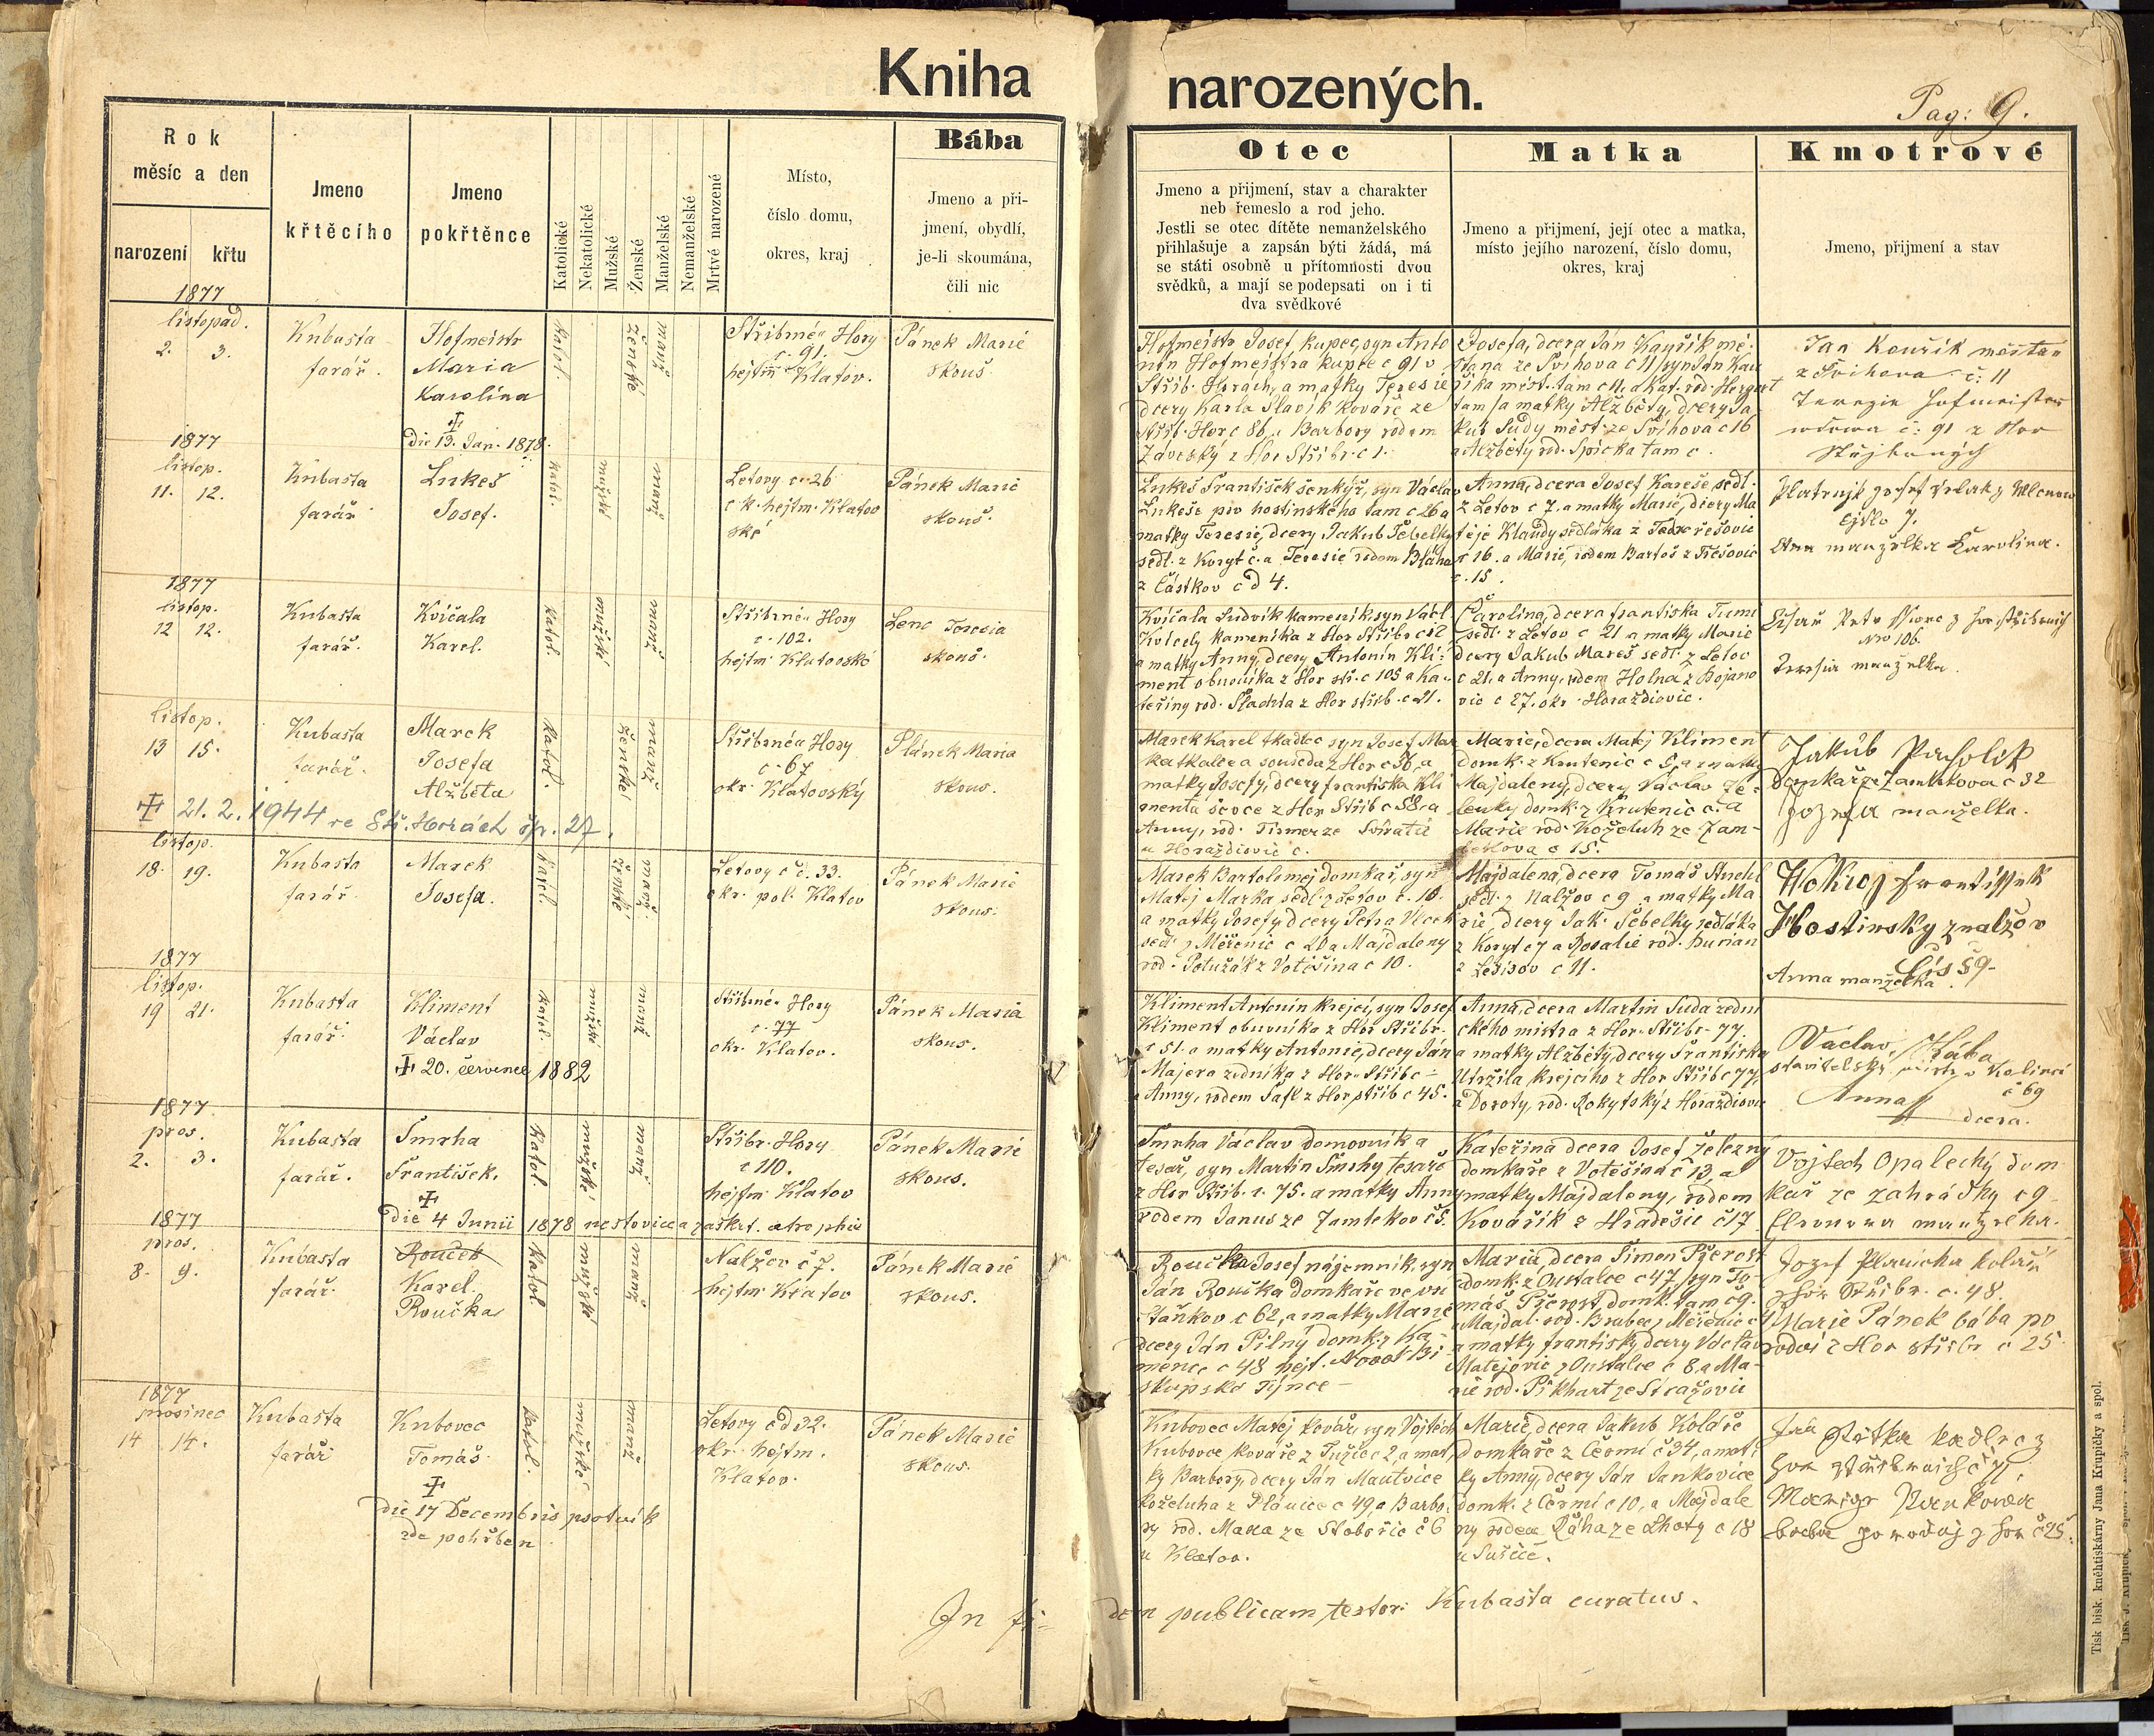 Kniha narozených.
Pag: 9.
Rok
měsíc a den
narození
křtu
Jmeno
křtěcího
Jmeno
pokřtěnce
Katolické
Nekatolické
Mužské
Ženské
Manželské
Nemanželské
Mrtvé narozené
Místo,
číslo domu,
okres, kraj
Bába
Jmeno a při-
jmení, obydlí,
je-li skoumána,
čili nic
Otec
Jmeno a přijmení, stav a charakter
neb řemeslo a rod jeho.
Jestli se otec dítěte nemanželského
přihlašuje a zapsán býti žádá, má
se státi osobně u přítomnosti dvou
svědků, a mají se podepsati on i ti
dva svědkové
Matka
Jmeno a přijmení, její otec a matka,
místo jejího narození, číslo domu,
okres, kraj
Kmotrové
Jmeno, přijmení a stav
1877
listopad.
2. 3.
Kubasta
farář.
Hofmeistr
Maria
Karolina
die 13. Jan. 1878.
katol.
ženské
manž
Stříbrné Hory
c. 91.
hejtm Klatov.
Pánek Marie
skouš.
Hofmeistr Josef kupec, syn Anto
nín Hofmeistra kupce c 91 v
Stříb. Horách, a matky Teresie
dcery Karla Slavík kováře ze
Stříb. Hor c 86, a Barbory rodem
Závesky z Hor Stříbr. c 1.
Josefa, dcera Ján Kauřík mě-
štana ze Švihova c 11 syn Ján Kau
říka měst. tam c 11, a Kat. rod. Hergert
tam a matky Alžběty, dcery Ja
kub Sudy měst. ze Švihova c 16
a Alžběty rod. Spicka tam c.
Jan Kouřik měštan
z Švihova č: 11
Terezie Hofmeister
wdowa č: 91 z Hor
1877
listop.
11. 12.
Kubasta
farář
Lukeš
Josef.
katol.
mužské
manž
Letovy c. 26
c k. hejtm. Klatov
ské
Pánek Marie
skouš.
Lukeš František šenkýř, syn Václav
Lukeše hostinského tam c 26 a
matky Teresie, dcery Jakub Šebelky
sedl. z Koryt č. a Teresie rodem Bláha
z Částkov c d 4.
Anna, dcera Josef Kareše, sedl.
z Letov c 7. a matky Marie, dcery Ma
těje Klaudy sedláka z Třešovic
c 16. a Marie, rodem Bartoš z Třešovic
c. 15.
manželka Karolina.
1877
listop.
12 12.
Kubasta
farář.
Kvíčala
Karel.
katol.
mužské
manž
Stříbrné Hory
c. 102.
hejtm Klatovské
Lenc Teresia
skouš.
Kvíčala Ludvík kameník, syn Václ
Kvícely kameníka z Hor Stříbr c 12
a matky Anny, dcery Antonín Kli-
ment obuvníka z Hor stř. c 105 a Ka-
teřiny rod. Šlachta z Hor stříb. c 21.
Carolina, dcera Františka Tůmi
sedl. z Letov c 21 a matky Marie
dcery Jakub Mareš sedl. z Letov
c 21. a Anny, rodem Holna z Bojano
vic c 27. okr. Horaždiovic.
Nro 106.
Teresia manželka.
listop.
13 15.
Kubasta
farář.
Marek
Josefa
Alžběta
21. 2. 1944 ve Stř. Horách čp. 27.
katol.
ženské
manž
Stříbrné Hory
c. 67
okr. Klatovský
Pánek Maria
skous.
Marek Karel tkadlec syn Josef Mar
ka tkalce a souseda z Hor c 36, a
matky Josefy, dcery Františka Kli
menta ševce z Hor Stříb c 58. a
Anny, rod. Tismer ze Svíratic
u Horaždiovic c.
Marie, dcera Matěj Kliment
domk. z Krutenic c 5, a matky
Majdaleny, dcery Václav Ze-
lenky domk. z Krutenic c. a
Marie rod. Koželuh ze Zam-
lekova c 15.
Jakub Pacholík
domkař ze Zamlekova c 32
Jozefa manželka.
listop.
18. 19.
Kubasta
farář.
Marek
Josefa.
katol.
ženské
manž
Letovy č. 33.
okr. pol. Klatov
Pánek Marie
skous.
Marek Bartoloměj domkař, syn
Matěj Marka sedl. z Letov c. 10.
a matky Josefy dcery Petra Vlcek
sedl. z Měřenic c 20 a Majdaleny
rod. Potužák z Votěšina c 10.
Majdalena, dcera Tomáš Stuchl
sedl. z Nalžov c 9 a matky Ma
rie dcery Jak. Šebelky sedláka
z Koryt c 7 a Rosalie rod. Burian
z Lešisov c 11.
Wokroj Frantissek
Hostinsky z nalžov
čís 59.
Anna manželka.
1877
listop.
19 21.
Kubasta
farář.
Kliment
Václav
20. červenec 1882
katol.
mužské
manž
Stříbrné Hory
c. 77
okr. Klatov.
Pánek Maria
skous.
Kliment Antonín krejčí, syn Josef
Kliment obuvníka z Hor Stříbr.
c 51. a matky Antonie, dcery Ján
Majera zedníka z Hor Stříb c
Anny, rodem Šafl z Hor stříb c 45.
Anna, dcera Martin Suda zedni
ckého mistra z Hor Stříbr. 77.
a matky Alžběty, dcery Františka
Utržila, krejcího z Hor Stříb c 77,
a Doroty, rod. Rokytský z Horaždiovic
Václav Hába
stavitelský mistr v Kolinci
č 69
Anna
dcera.
1877
pros.
2. 3.
Kubasta
farář.
Smrha
František.
die 4 Junii 1878 nestovice a zaškrt. atrophia
katol.
mužské
manž
Stříbr. Hory
c 110.
hejtm. Klatov
Pánek Marie
skous.
Smrha Václav domovník a
tesař, syn Martin Smrhy tesaře
z Hor Stříb. c. 75. a matky Anny
rodem Janus ze Zamlekov č 5.
Kateřina dcera Josef Železný
domkaře z Votěšina č 13, a
matky Majdaleny, rodem
Kovářík z Hradešic č 17.
Vojtech Opalecký dom
kař ze zahrádky c 9
Eleonora manželka.
1877
pros.
8. 9.
Kubasta
farář.
Rouček
Karel
Roučka
katol.
mužské
manž
Nalžov č 7.
hejtm Klatov
Pánek Marie
skous.
Roučka Josef nájemník, syn
Ján Roučka domkaře ve vsi
Staňkov c 62, a matky Marie
dcery Ján Pilný domk. z Ka-
mence c 48 hejt.
skupsko Týnce
Maria, dcera Šimon Přerost
domk. z Oustalce c 47, syn To-
máš Přerost, domk. tam c 9.
a Majdal. rod. Brabec z Měřenic c
a matky Františky dcery Václav
Matějovic z Oustalce c 8, a Ma-
rie rod. Pikhart ze Stražovic
Jozef Plánicka kolář
z Hor Stříbr. c. 48.
Marie Pánek bába po
rodní z Hor stříbr c 25
1877
prosinec
14 14.
Kubasta
farář
Kubovec
Tomáš
die 17 Decembris psotník
zde pohřben
katol.
mužské
manž
Letovy c d 32.
okr. hejtm.
Klatov.
Pánek Marie
skous.
Kubovec Matěj kovář, syn Vojtěch
Kubovce kováře z Tužic c 2, a mat-
ky Barbory, dcery Ján Mautvice
koželuha z Plánice c 49, a Barbo-
ry rod. Maxa ze Stobořic č 6
u Klatov.
Marie, dcera Jakub Koláře
domkaře z Čermi č 34, a mat-
ky Anny, dcery Ján Jankovice
domk. z Čermí c 10, a Majdale
ny rodem Ráha ze Lhoty c 18
u Sušice.
In fi-
dem publicam testor: Kubasta curatus.
Tisk bisk. kněhtiskárny Jana Krupičky a spol.